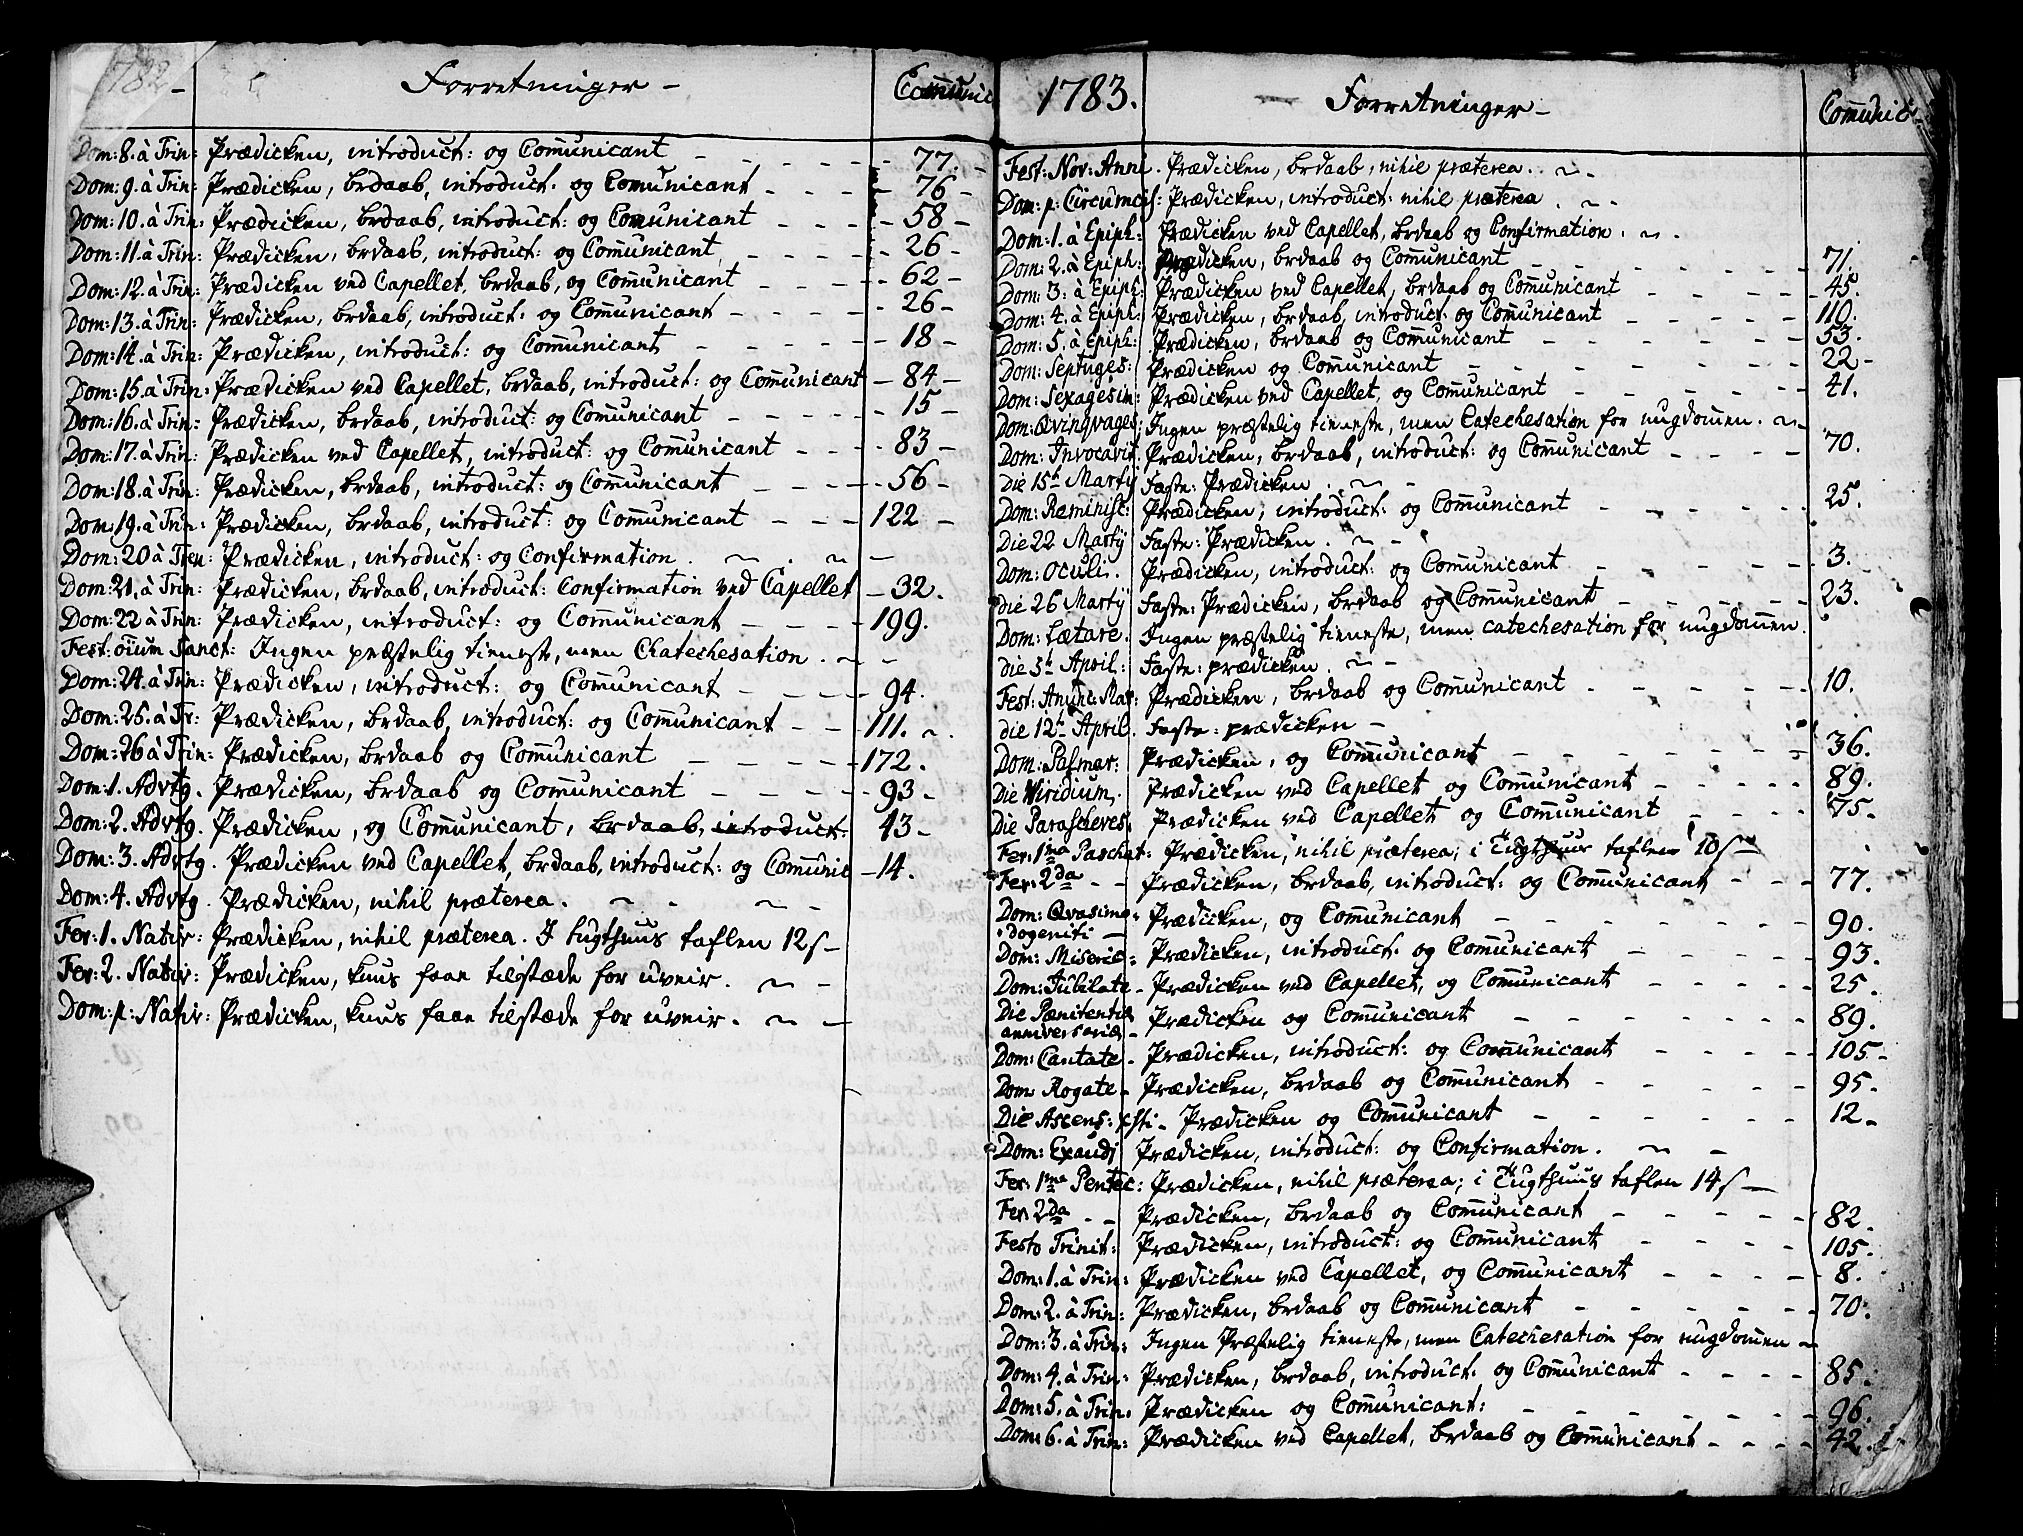 1782 - Forretninger - Com̃unic
Dom: 8. à Trin: Prædicken, introduct: og Com̃unicant - - - - - - 77. -
Dom: 9. à Trin: Prædicken, brdaab, introduct: og Com̃unicant - - - - 76 -
Dom: 10. à Trin: Prædicken, brdaab, introduct: og Com̃unicant - - - - 58 -
Dom: 11. à Trin: Prædicken, brdaab, introduct: og Com̃unicant, - - - - - 26 -
Dom: 12. à Trin: Prædicken ved Capellet, brdaab, og Com̃unicant - - - - 62 -
Dom: 13. à Trin: Prædicken, brdaab, introduct: og Com̃unicant - - - - - 26 -
Dom: 14. à Trin: Prædicken, introduct: og Com̃unicant - - - - - - 18 -
Dom: 15. à Trin: Prædicken ved Capellet, brdaab, introduct: og Com̃unicant - 84 -
Dom: 16. à Trin: Prædicken, brdaab, introduct: og Com̃unicant - - - - - 15 -
Dom: 17. à Trin: Prædicken ved Capellet, introduct: og Com̃unicant - - - - 83 -
Dom: 18. à Trin: Prædicken, brdaab, introduct: og Com̃unicant - - - - - 56 -
Dom: 19. à Trin: Prædicken, brdaab, introduct: og Com̃unicant - - - 122 -
Dom: 20 à Tren: Prædicken, introduct: og Confirmation. ~ . ~ -
Dom: 21. à Trin: Prædicken, brdaab, introduct: Confirmation ved Capellet - 32.
Dom: 22 à Trin: Prædicken, introduct: og Com̃unicant - - - - 199.
Fest: oïum Sanct: Ingen præstelig tieneste, men Chatechesation. ~ -
Dom: 24. à Trin: Prædicken, introduct: og Com̃unicant - - - - 94.
Dom: 25. à Tr: Prædicken, brdaab, introduct: og Com̃unicant - - 111. ~.
Dom: 26 à Trin: Prædicken, brdaab og Com̃unicant - - - - - 172.
Dom: 1. Advtg. Prædicken, brdaab og Com̃unicant - - - - - 93 -
Dom: 2. Advtg. Prædicken, og Com̃unicant, brdaab, introduct: 43 -
Dom: 3. Advtg. Prædicken ved Capellet, brdaab, introduct: og Com̃unic - 14.
Dom: 4. Advtg. Prædicken, nihil præterea. ~ - ~ -
Fer: 1. Nativ: Prædicken, nihil præterea. I tugthuus taflen 12 s -
Fer: 2. Nativ: Prædicken, kuns faae tilstæde for uveir. ~ -
Dom: p: Nativ: Prædicken, kuns faae tilstæde for uveir. ~ -
1783. Forretninger - Com̃unic -
Fest: Nov: Anni. Prædicken, brdaab, nihil præterea. . ~ -
Dom: p: Circumcis: Prædicken, introduct: nihil præterea. ~ -
Dom: 1. à Epiph: Prædicken ved Capellet, brdaab og Confirmation. ~ .
Dom: 2. à Epiph: Prædicken, brdaab og Com̃unicant - - - - - - - 71.
Dom: 3. à Epiph: Prædicken ved Capellet, brdaab og Com̃unicant - - - - 45.
Dom: 4. à Epiph: Prædicken, brdaab, introduct: og Com̃unicant - - - - - 110.
Dom: 5. à Epiph: Prædicken, brdaab og Com̃unicant - - - - - - - 53.
Dom: Septuges: Prædicken og Com̃unicant - - - - - - - - 22 -
Dom: Sexagesim: Prædicken ved Capellet, og Com̃unicant - - - - - 41.
Dom: Qvingvages: Ingen præstelig tieneste, men Catechesation for ungdom̃en. ~
Dom: Invocavit. Prædicken, brdaab, introduct: og Com̃unicant - - - - 70.
Die 15t Martij Faste: Prædicken. ~ -
Dom: Reminisc: Prædicken, introduct: og Com̃unicant - - - - - - 25.
Die 22 Martij Faste: Prædicken. ~ -
Dom: Oculi. Prædicken, introduct: og Com̃unicant - - - - - - 3.
Die 26 Martij Faste: Prædicken, brdaab og Com̃unicant - - - - - 23.
Dom: Lætare. Ingen præstelig tieneste, men catechesation for ungdom̃en.
Die 5t April: Faste: prædicken. ~ -
Fest: Anunc: Mar: Prædicken, brdaab og Com̃unicant - - - - - - 10.
Die 12t April. Faste: prædicken -
Dom: Palmar: Prædicken, og Com̃unicant - - - - - - - - 36.
Die Viridium, Prædicken ved Capellet og Com̃unicant - - - - - 89.
Die Parasceves, Prædicken ved Capellet og Com̃unicant - - - - 75.
Fer: 1ma Paschat: Prædicken, nihil præterea; i Tugthuus taflen 10 s -
Fer: 2da - - Prædicken, brdaab, introduct: og Com̃unicant - - - 77.
Dom: Qvasimo-
dogeniti - Prædicken, og Com̃unicant - - - - - - - - 90.
Dom: Miseric: Prædicken, introduct: og Com̃unicant - - - - - 93.
Dom: Jubilate - Prædicken ved Capellet, og Com̃unicant - - - - - 25.
Die Pænitentiæ
anniversariæ - Prædicken og Com̃unicant - - - - - - - - 89.
Dom: Cantate - Prædicken, introduct: og Com̃unicant - - - - - 105 -
Dom: Rogate - Prædicken, brdaab og Com̃unicant - - - - - - 95 -
Die Ascens: Xsti - Prædicken og Com̃unicant - - - - - - - 12 -
Dom: Exaudj Prædicken, introduct: og Confirmation. ~ -
Fer: 1ma Pentec: Prædicken, nihil præterea; i Tugthuus taflen 14 s -
Fer 2da - - Prædicken, brdaab og Com̃unicant - - - - - - 82.
Festo Trinit: Prædicken, introduct: og Com̃unicant - - - - - 105.
Dom: 1. à Trin: Prædicken ved Capellet, og Com̃unicant - - - - - 8.
Dom: 2. à Trin: Prædicken, brdaab og Com̃unicant - - - - - - 70.
Dom: 3. à Trin: Ingen Præstelig tieneste, men Catechesation for ungdom̃en ~
Dom: 4. à Trin: Prædicken, brdaab, introduct: og Com̃unicant - - - - 85.
Dom: 5. à Trin: Prædicken og Com̃unicant: - - - - - - - - 96.
Dom: 6. à Trin: Prædicken ved Capellet, brdaab og Com̃unicant - - - - 42.